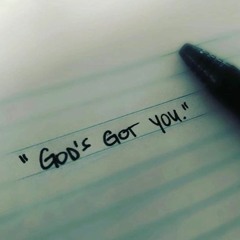 "GOD'S GOT YOU."